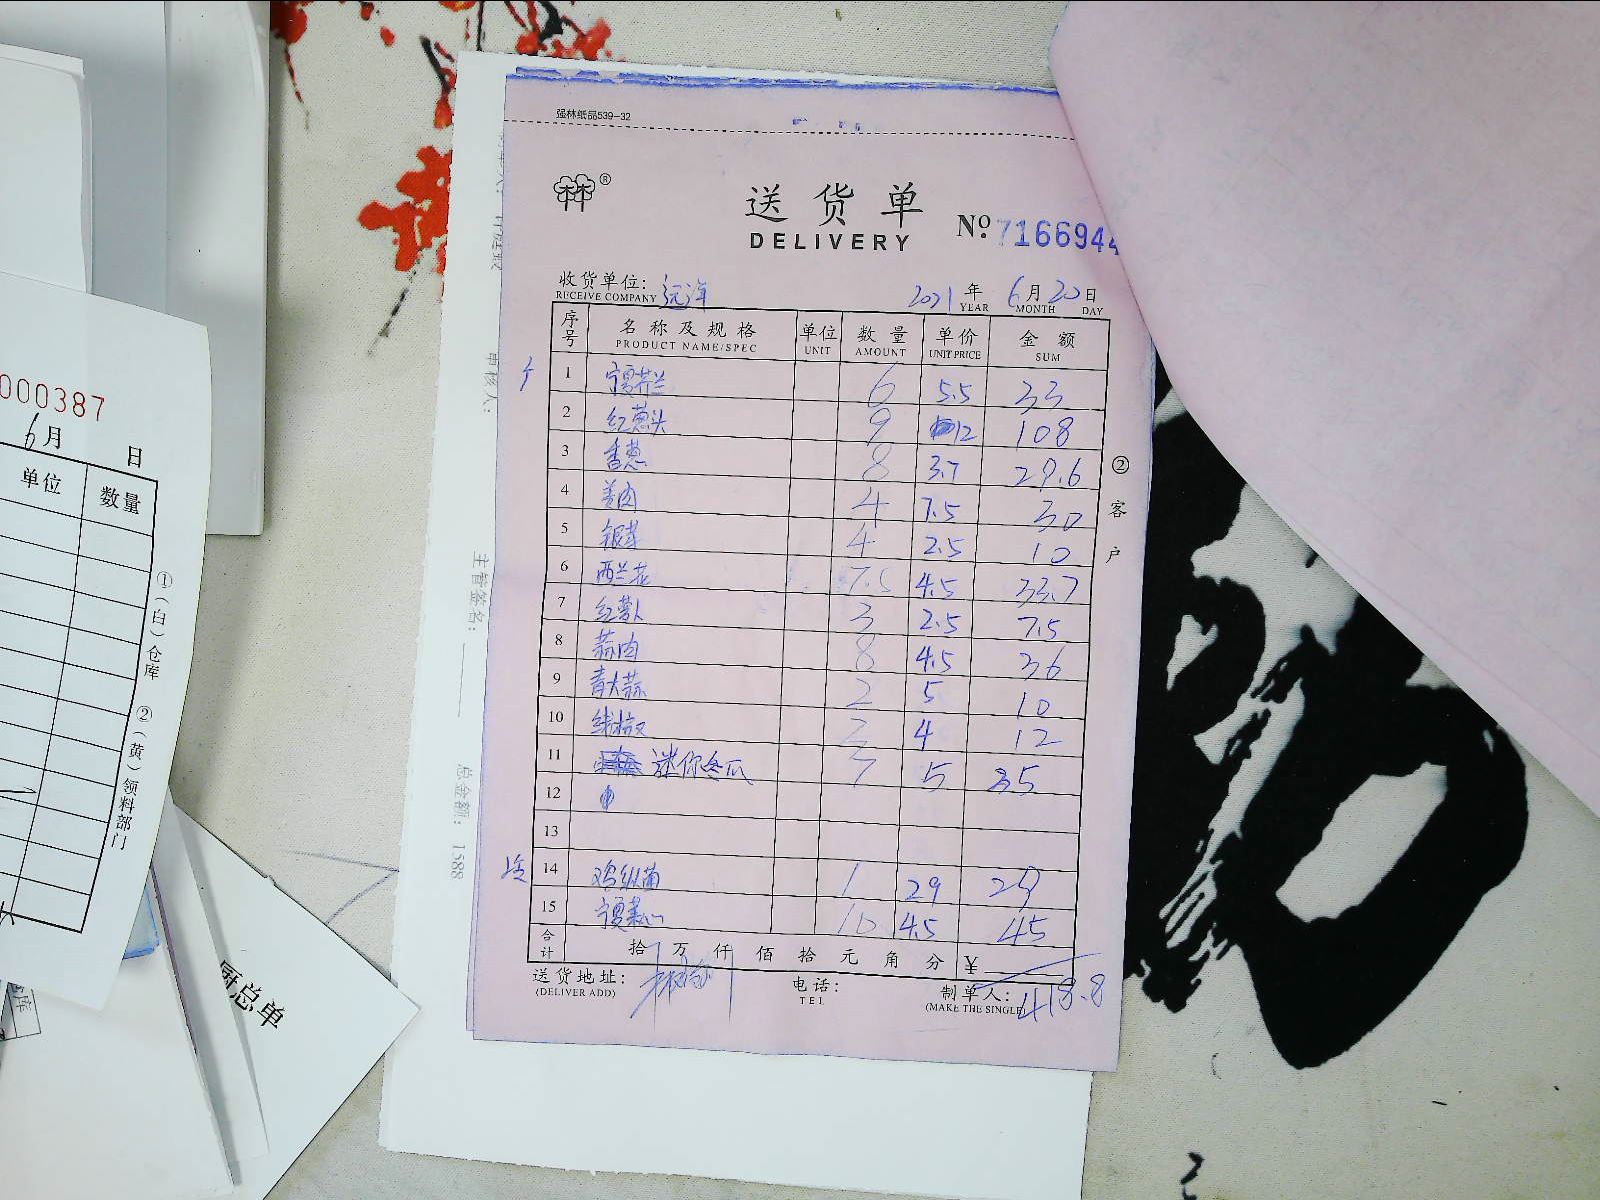 强林纸品539-32
®
送货单
DELIVERY
№ 7166944
收货单位: 远洋 2021年6月20日
RECEIVE COMPANY YEAR MONTH DAY
序号 名称及规格 单位 数量 单价 金额
PRODUCT NAME/SPEC UNIT AMOUNT UNIT PRICE SUM
1 宁夏芥兰 6 5.5 33
2 红葱头 9 12 108
3 香葱 8 3.7 29.6
4 姜肉 4 7.5 30
5 银芽 4 2.5 10
6 西兰花 7.5 4.5 33.7
7 红萝卜 3 2.5 7.5
8 蒜肉 8 4.5 36
9 青大蒜 2 5 10
10 线椒 3 4 12
11 迷你冬瓜 7 5 35
12
13
14 鸡枞菌 1 29 29
15 宁夏菜心 10 4.5 45
合计 拾 万 仟 佰 拾 元 角 分 ¥
418.8
送货地址: 电话: 制单人:
(DELIVER ADD) TEL (MAKE THE SINGLE)
②客户
000387
6月 日
单位 数量
①(白)仓库 ②(黄)领料部门
审核人:
主管签名:
总金额: 1588
厨总单
库